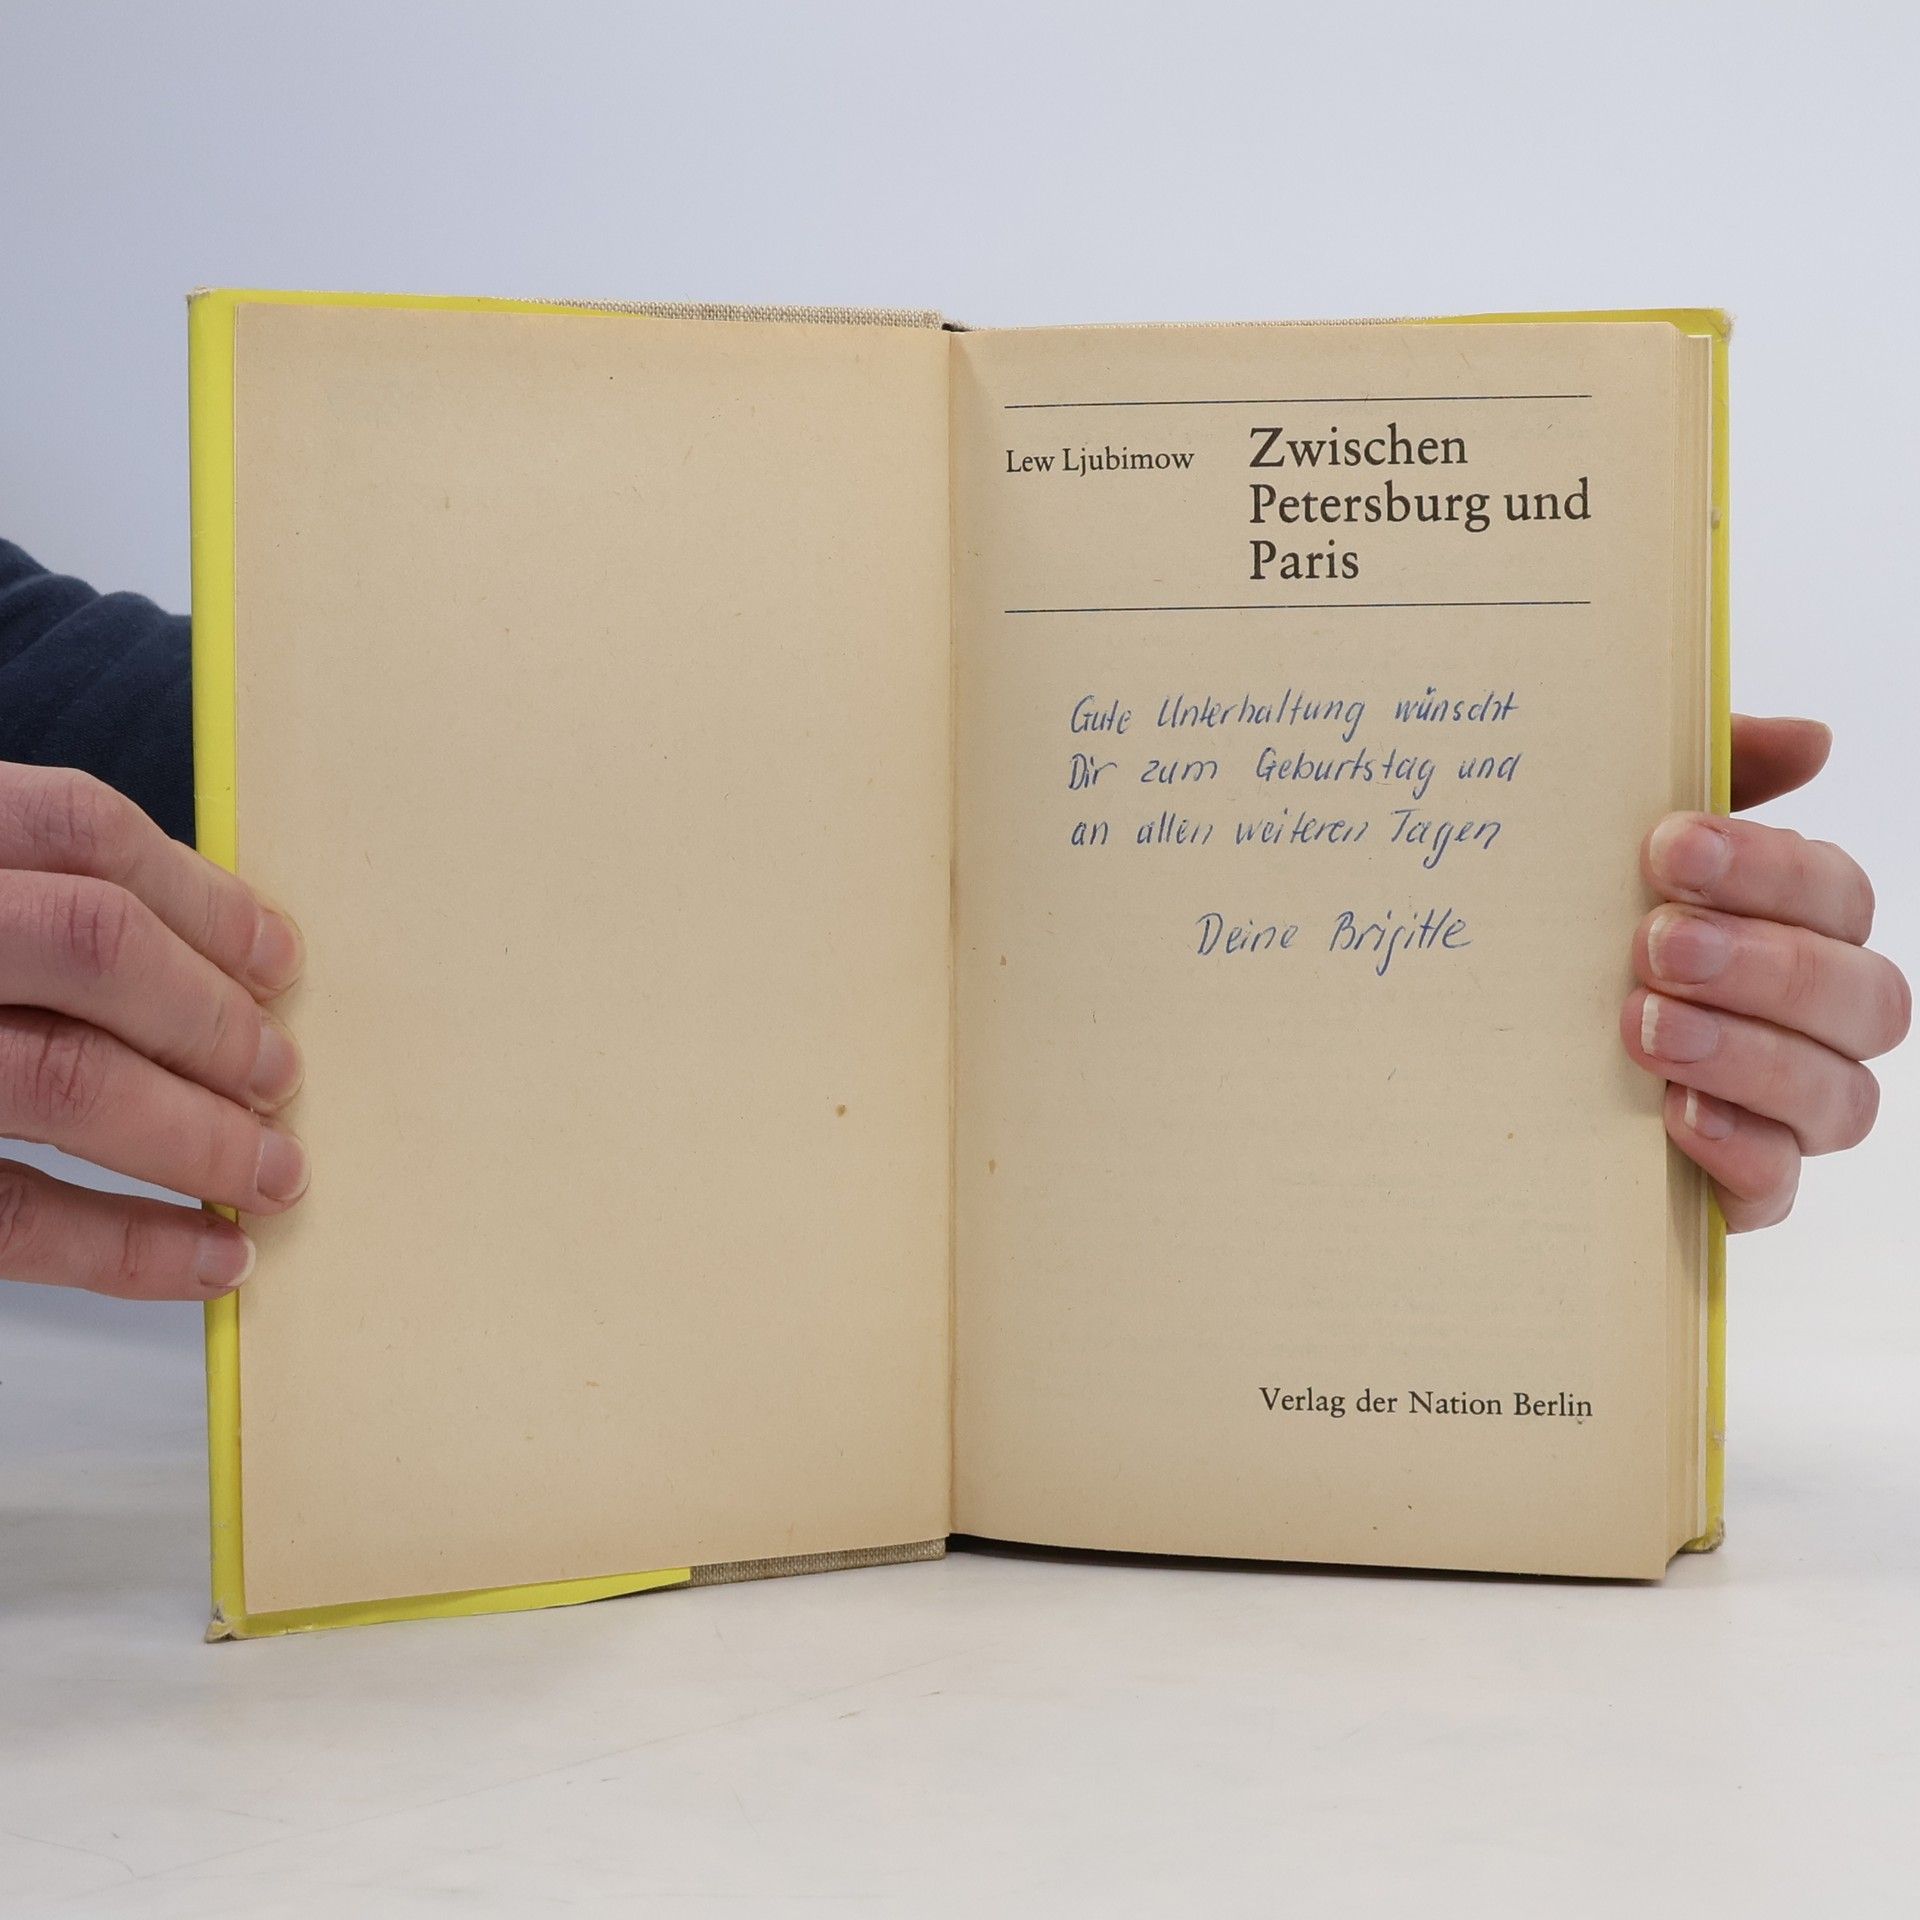 Lew Ljubimow
Zwischen
Petersburg und
Paris
Gute Unterhaltung wünscht
Dir zum Geburtstag und
an allen weiteren Tagen
Deine Brigitte
Verlag der Nation Berlin